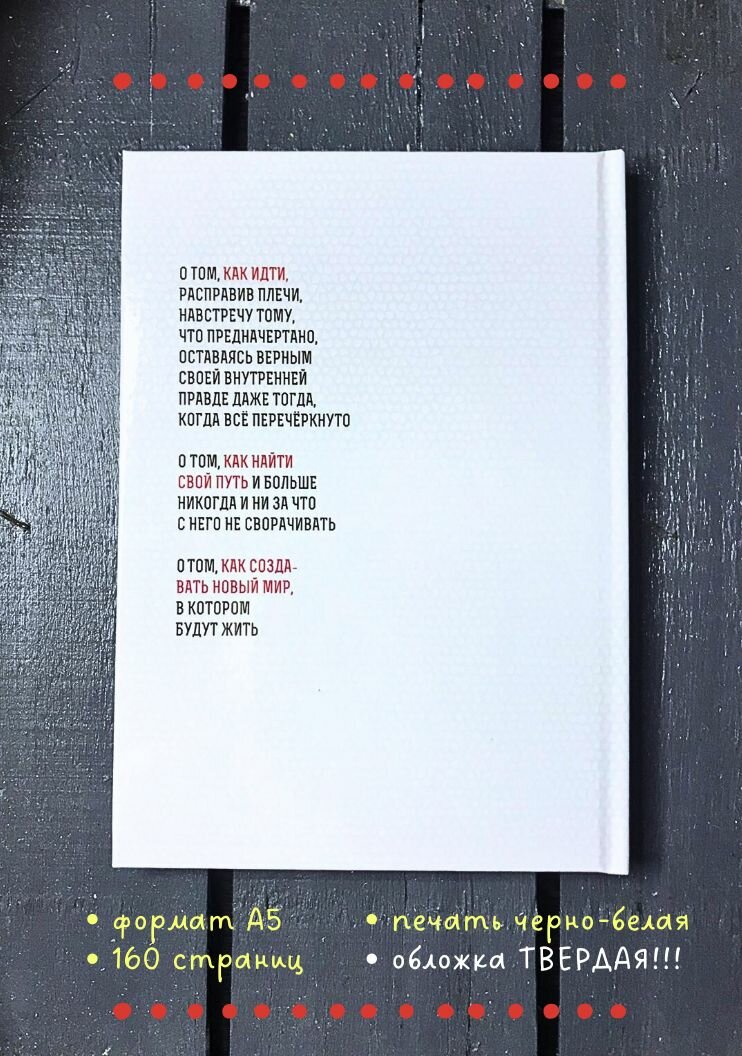 О ТОМ, КАК ИДТИ,
РАСПРАВИВ ПЛЕЧИ,
НАВСТРЕЧУ ТОМУ,
ЧТО ПРЕДНАЧЕРТАНО,
ОСТАВАЯСЬ ВЕРНЫМ
СВОЕЙ ВНУТРЕННЕЙ
ПРАВДЕ ДАЖЕ ТОГДА,
КОГДА ВСЁ ПЕРЕЧЁРКНУТО
О ТОМ, КАК НАЙТИ
СВОЙ ПУТЬ И БОЛЬШЕ
НИКОГДА И НИ ЗА ЧТО
С НЕГО НЕ СВОРАЧИВАТЬ
О ТОМ, КАК СОЗДА-
ВАТЬ НОВЫЙ МИР,
В КОТОРОМ
БУДУТ ЖИТЬ
• формат А5
• 160 страниц
• печать черно-белая
• обложка ТВЕРДАЯ!!!